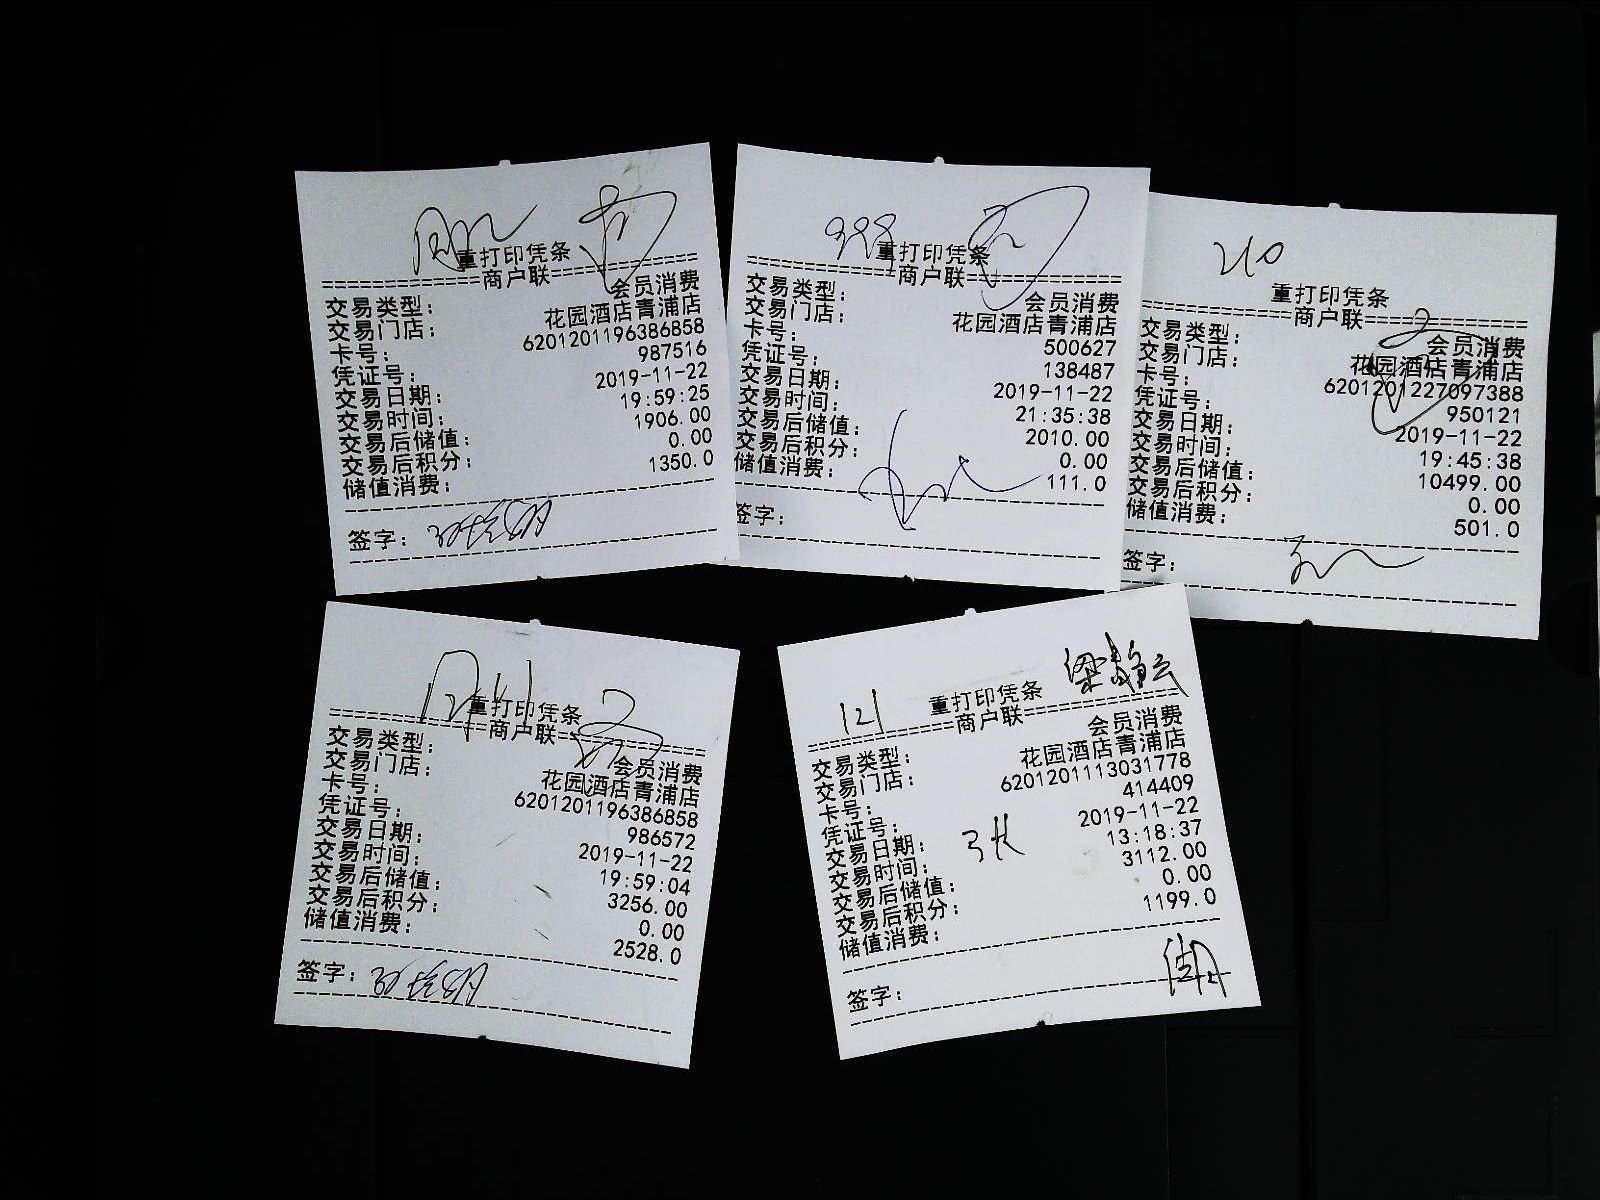 重打印凭条
商户联
交易类型： 会员消费
交易门店： 花园酒店青浦店
卡号： 6201201196386858
凭证号： 987516
交易日期： 2019-11-22
交易时间： 19:59:25
交易后储值： 1906.00
交易后积分： 0.00
储值消费： 1350.0
签字：
998
重打印凭条
商户联
交易类型： 会员消费
交易门店： 花园酒店青浦店
卡号： 500627
凭证号： 138487
交易日期： 2019-11-22
交易时间： 21:35:38
交易后储值： 2010.00
交易后积分： 0.00
储值消费： 111.0
签字：
210
重打印凭条
商户联
交易类型： 会员消费
交易门店： 花园酒店青浦店
卡号： 6201201227097388
凭证号： 950121
交易日期： 2019-11-22
交易时间： 19:45:38
交易后储值： 10499.00
交易后积分： 0.00
储值消费： 501.0
签字：
重打印凭条
商户联
交易类型： 会员消费
交易门店： 花园酒店青浦店
卡号： 6201201196386858
凭证号： 986572
交易日期： 2019-11-22
交易时间： 19:59:04
交易后储值： 3256.00
交易后积分： 0.00
储值消费： 2528.0
签字：
121
重打印凭条
商户联
交易类型： 会员消费
交易门店： 花园酒店青浦店
卡号： 6201201113031778
凭证号： 414409
交易日期： 2019-11-22
交易时间： 13:18:37
张
交易后储值： 3112.00
交易后积分： 0.00
储值消费： 1199.0
签字：